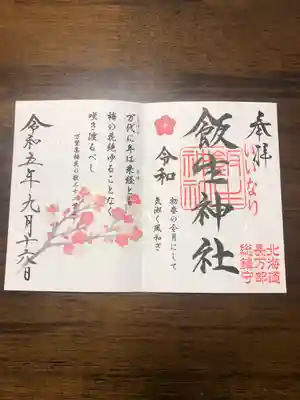 奉拝
いいなり
飯生神社
北海道
長万部
総鎮守
令和
初春の令月にして
気淑く風和ぎ
万代に年は来経とも
梅の花絶ゆることなく
咲き渡るべし
令和五年九月十六日